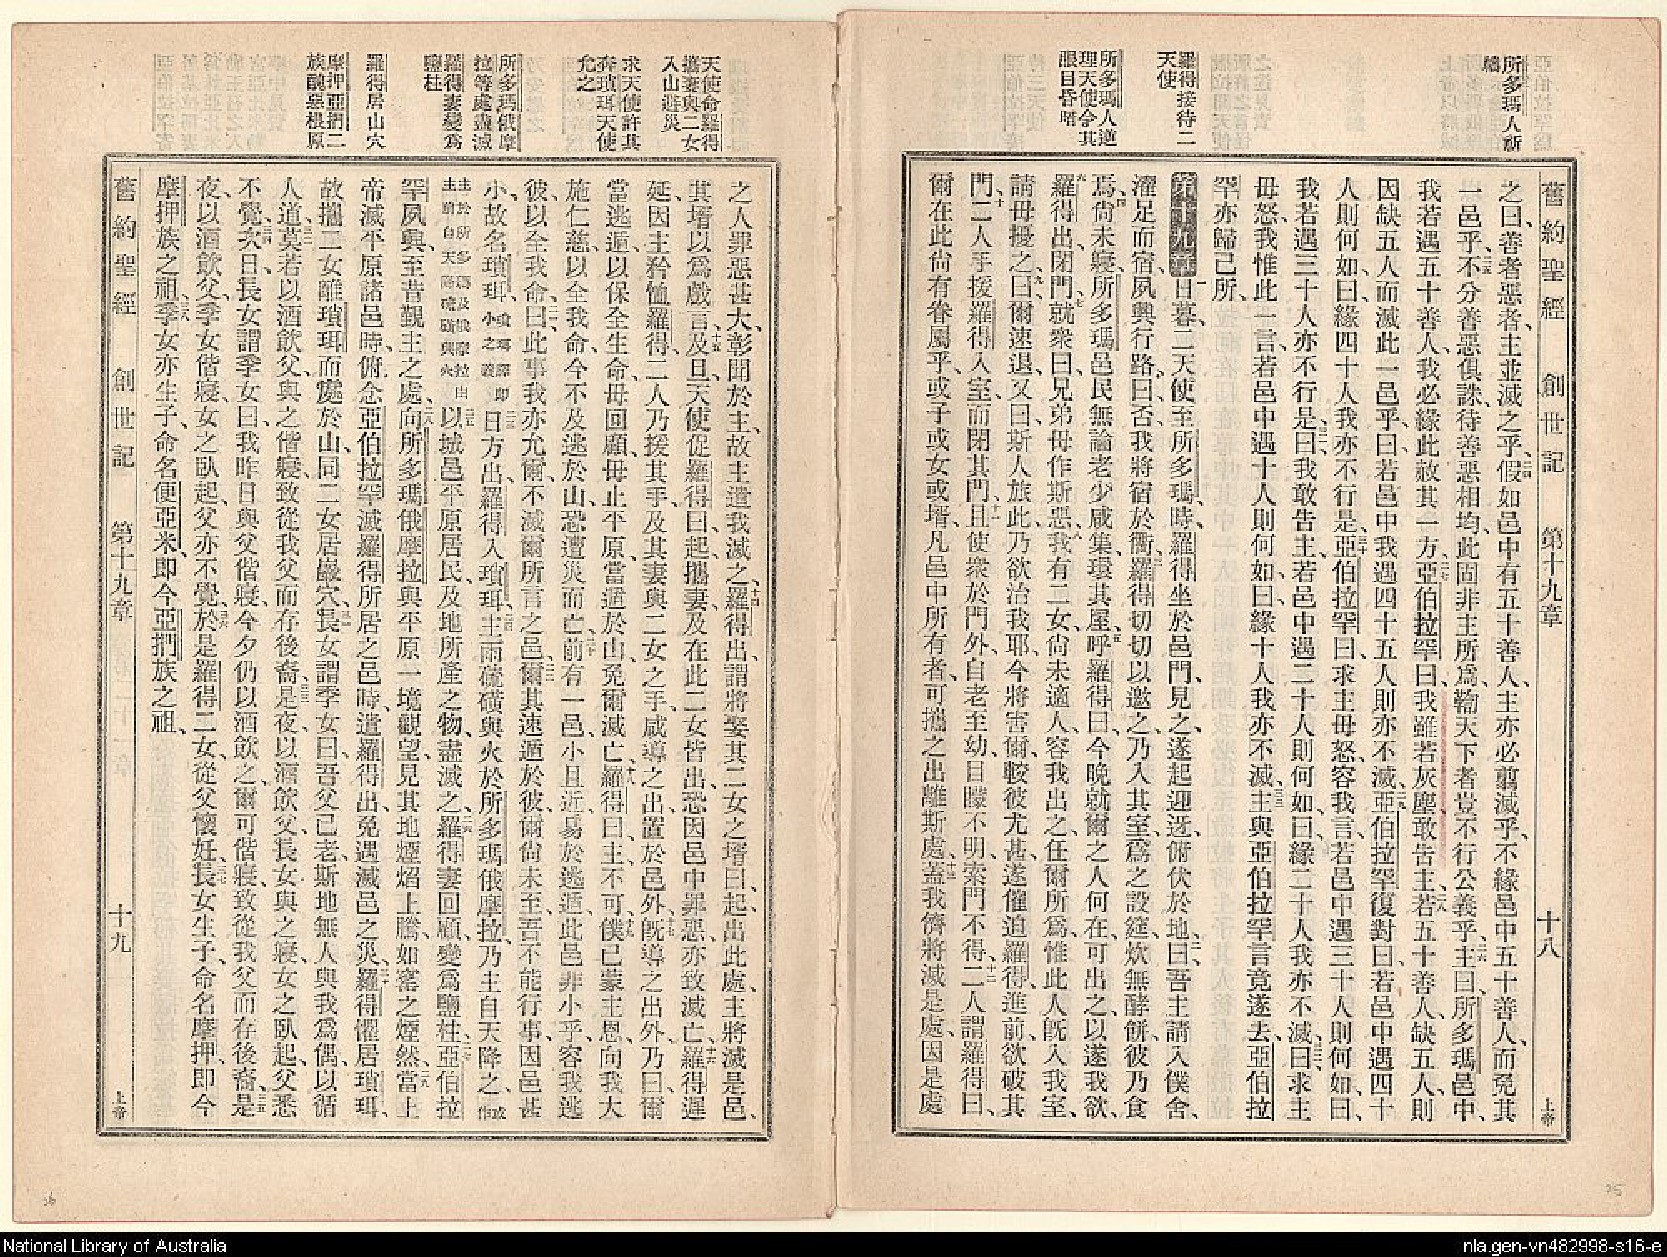 舊約聖經 創世記 第十九章 十八 上帝
所多瑪人祈禱
之曰、善者惡者、主並滅之乎、假如邑中有五十善人、主亦必翦滅乎、不緣邑中五十善人、而免其
一邑乎、不分善惡俱誅、待善惡相均、此固非主所爲、鞫天下者、豈不行公義乎、主曰、所多瑪邑中、
我若遇五十善人、我必緣此赦其一方、亞伯拉罕曰、我雖若灰塵、敢告主、若五十善人缺五人、則
因缺五人而滅此一邑乎、曰、若邑中我遇四十五人、則亦不滅、亞伯拉罕復對曰、若邑中遇四十
人則何如、曰、緣四十人我亦不行是、亞伯拉罕曰、求主毋怒、容我言、若邑中遇三十人則何如、曰、
我若遇三十人、亦不行是、曰、我敢告主、若邑中遇二十人則何如、曰、緣二十人我亦不滅、曰、求主
毋怒、我惟此一言、若邑中遇十人則何如、曰、緣十人我亦不滅、主與亞伯拉罕言竟遂去、亞伯拉
罕亦歸己所、
羅得接待二天使
第十九章 日暮、二天使至所多瑪、時羅得坐於邑門、見之、遂起迎迓、俯伏於地、曰、吾主請入僕舍、
濯足而宿、夙興行路、曰、否、我將宿於衢、羅得切切以邀之、乃入其室、爲之設筵、炊無酵餅、彼乃食
所多瑪人逆理天使令其眼目昏矒
焉、尚未寢、所多瑪邑民、無論老少咸集、環其屋、呼羅得曰、今晚就爾之人何在、可出之、以遂我欲、
羅得出、閉門、就衆曰、兄弟毋作斯惡、我有二女、尚未適人、容我出之、任爾所爲、惟此人旣入我室、
請毋擾之、曰、爾速退、又曰、斯人旅此、乃欲治我耶、今將害爾、較彼尤甚、遂催迫羅得、進前欲破其
門、二人手援羅得入室、而閉其門、且使衆於門外、自老至幼、目矇不明、索門不得、二人謂羅得曰、
爾在此尚有眷屬乎、或子或女或壻、凡邑中所有者、可攜之出、離斯處、蓋我儕將滅是處、因是處
之人罪惡甚大、彰聞於主、故主遣我滅之、羅得出、謂將娶其二女之壻曰、起、出此處、主將滅是邑、
天使命羅得攜妻與二女入山避災
其壻以爲戲言、及旦、天使促羅得曰、起、攜妻及在此二女皆出、恐因邑中罪惡、亦致滅亡、羅得遲
延、因主矜恤羅得、二人乃援其手、及其妻與二女之手、咸導之出、置於邑外、旣導之出外、乃曰、爾
求天使許其奔瑣珥天使允之
當逃遁、以保全生命、毋回顧、毋止平原、當遁於山、免爾滅亡、羅得曰、主不可、僕已蒙主恩、向我大
施仁慈、以全我命、今不及逃於山、恐遭災而亡、前有一邑、小且近、易於逃遁、此邑非小乎、容我逃
彼、以全我命、曰、此事我亦允爾、不滅爾所言之邑、爾其速遁於彼、爾尚未至、吾不能行事、因邑甚
所多瑪俄摩拉等處盡滅
小、故名瑣珥、瑣珥譯卽小之義 日方出、羅得入瑣珥、主雨硫磺與火於所多瑪俄摩拉、乃主自天降之、或作
主於所多瑪及俄摩拉由主前自天降硫磺與火 以城邑平原居民、及地所產之物、盡滅之、羅得妻回顧、變爲鹽柱、亞伯拉
羅得妻變爲鹽柱
罕夙興、至昔觀主之處、向所多瑪俄摩拉與平原一境觀望、見其地煙熖上騰、如窰之煙然、當上
帝滅平原諸邑時、俯念亞伯拉罕、滅羅得所居之邑時、遣羅得出、免遇滅邑之災、羅得懼居瑣珥、
羅得居山穴
故攜二女離瑣珥而處於山、同二女居巖穴、長女謂季女曰、吾父已老、斯地無人與我爲偶、以循
摩押亞捫二族醜惡根原
人道、莫若以酒飲父、與之偕寢、致從我父而存後裔、是夜以酒飲父、長女與之寢、女之臥起、父悉
不覺、次日、長女謂季女曰、我昨日與父偕寢、今夕仍以酒飲之、爾可偕寢、致從我父而存後裔、是
夜以酒飲父、季女偕寢、女之臥起、父亦不覺、於是羅得二女、從父懷妊、長女生子、命名摩押、卽今
摩押族之祖、季女亦生子、命名便亞米、卽今亞捫族之祖、
舊約聖經 創世記 第十九章 十九 上帝
National Library of Australia
nla.gen-vn482998-s16-e